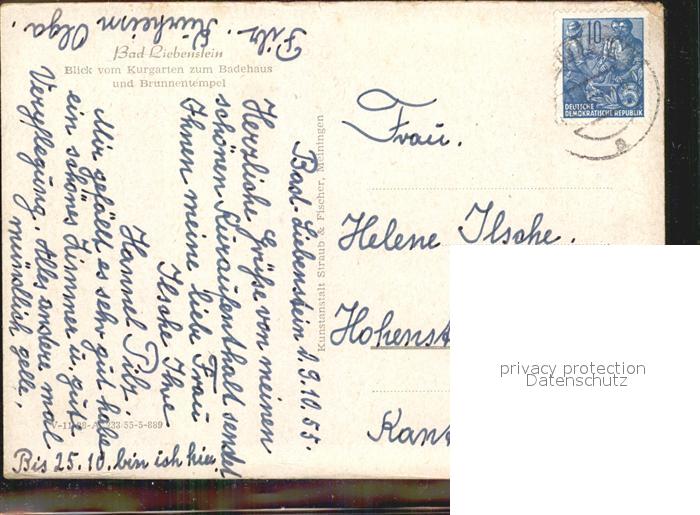 Bad Liebenstein
Blick vom Kurgarten zum Badehaus
und Brunnentempel
Bad-Liebenstein d. 9.10.55.
Herzliche Grüße von meinen
schönen Kuraufenthalt sendet
Ihnen meine liebe Frau
Ilsche Ihre
Hannel Pilz.
Mir gefällt es sehr gut habe
ein schönes Zimmer u. gute
Verpflegung. Alles andere mal
mündlich gelle.
Bis 25.10. bin ich hier
Pilz. Olga.
Kunstanstalt Straub & Fischer, Meiningen
10
DEUTSCHE
DEMOKRATISCHE REPUBLIK
Frau.
Helene Ilsche.
Hohenst
Kan
privacy protection
Datenschutz